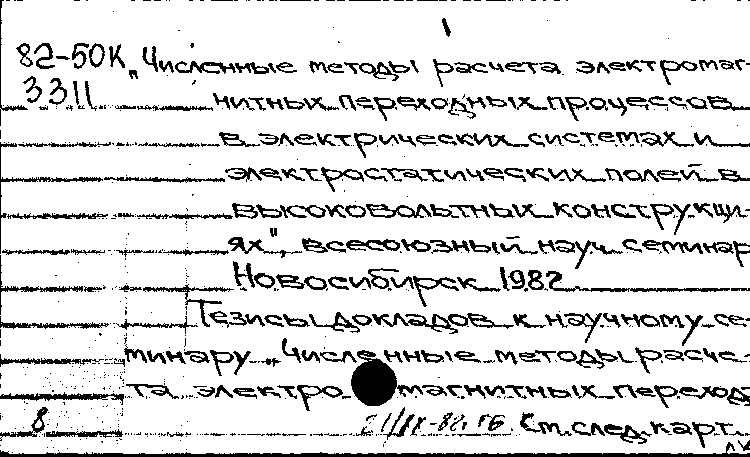 1
82-50К „Численные методы расчета электромаг-
3311 нитных переходных процессов
в электрических системах и
электростатических полей в
высоковольтных конструкци-
ях", всесоюзный науч. семинар
Новосибирск 1982
Тезисы докладов к научному се-
минару „Численные методы расче-
та электромагнитных переход
8 21/IX-82. См. след. карт.